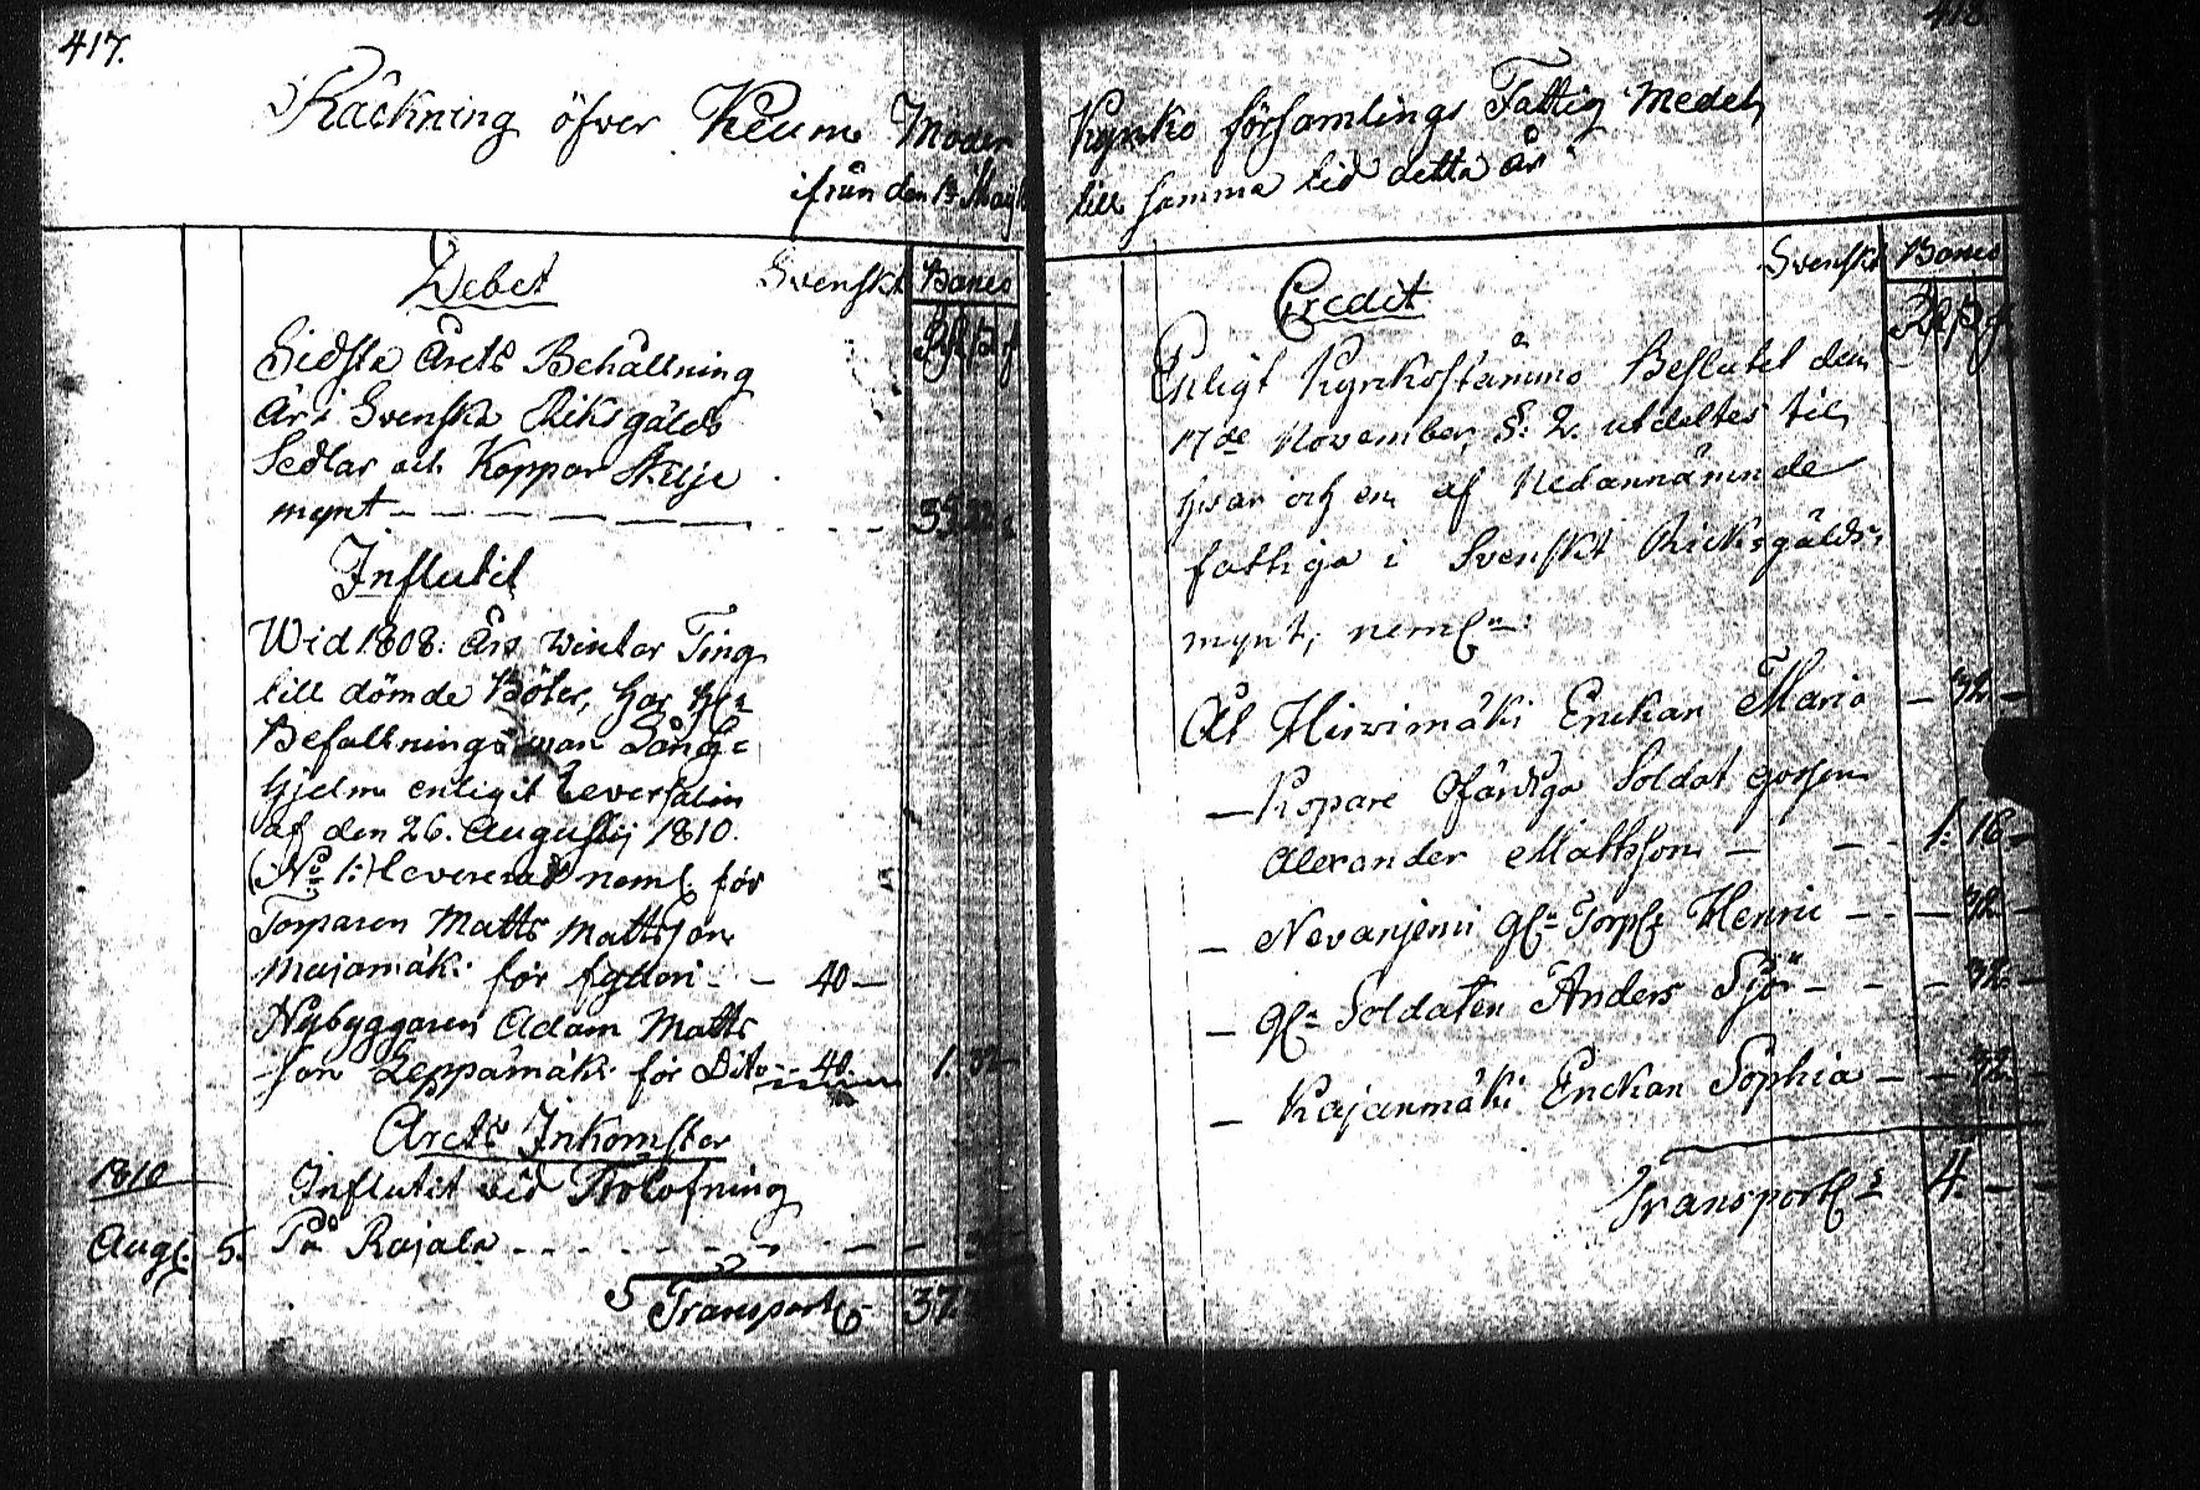 417.
Räckning öfver Keuru Moder
ifrån den 1sta Maij
Debet Svenskt Banco
Sidsta Årets Behållning
är i Svenska Riksgälds
Sedlar och Koppar Skilje
mynt - - - - - - -
Influtit
Wid 1808: Års Winter Ting
till dömde Böter, har Hr
Befallningsman Lång=
hjelm enligit Leversalin
af den 26. Augustij 1810.
(No 1:) levererad neml. för
Torparen Matts Mattsson
Majamäki för fylleri - - 40 -
Nybyggaren Adam Matts
son Leppämäki för Dito - - 40. 1. 32 -
Årets Inkomster
1810
Influtit vid Trolofning
Aug. 5. På Rajala - - - - - - -
Transport 37.
418.
Kyrko församlings Fattig Medel,
till samma tid detta år
Svenskt Banco
Credit
Enligt Kyrkostämmo Beslutet den
17de November, §: 2. utdeltes til
hvar och en af Nedannämnde
fattiga i Svenskt Ricksgälds
mynt, neml.:
Åt Hirvimäki Enckan Maria - 32 -
— Kopare Ofärdiga Soldat gossen
Alexander Mattsson - - - 1: 16 -
— Nevanjemi Gl. Torp. Henric - - - 32 -
— Gl. Soldaten Anders Sjö - - - 32. -
— Kajanmäki Enckan Sophia - - 32. -
Transport 4. - -